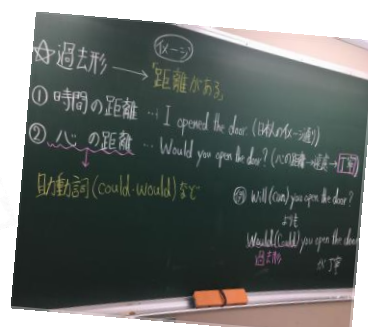 イメージ
☆過去形 → 「距離がある」
① 時間の距離 … I opened the door. (日本人のイメージ通り)
② 心の距離 … Would you open the door? (心の距離→遠い→丁寧)
助動詞(could・would)など
例 Will (can) you open the door?
よりも
Would (Could) you open the door
過去形
が丁寧